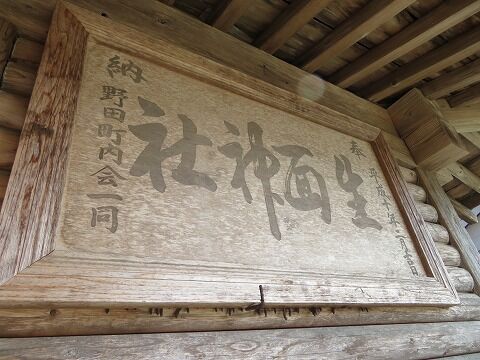 奉 平成十年 月吉日
生面神社
納 野田町内会一同